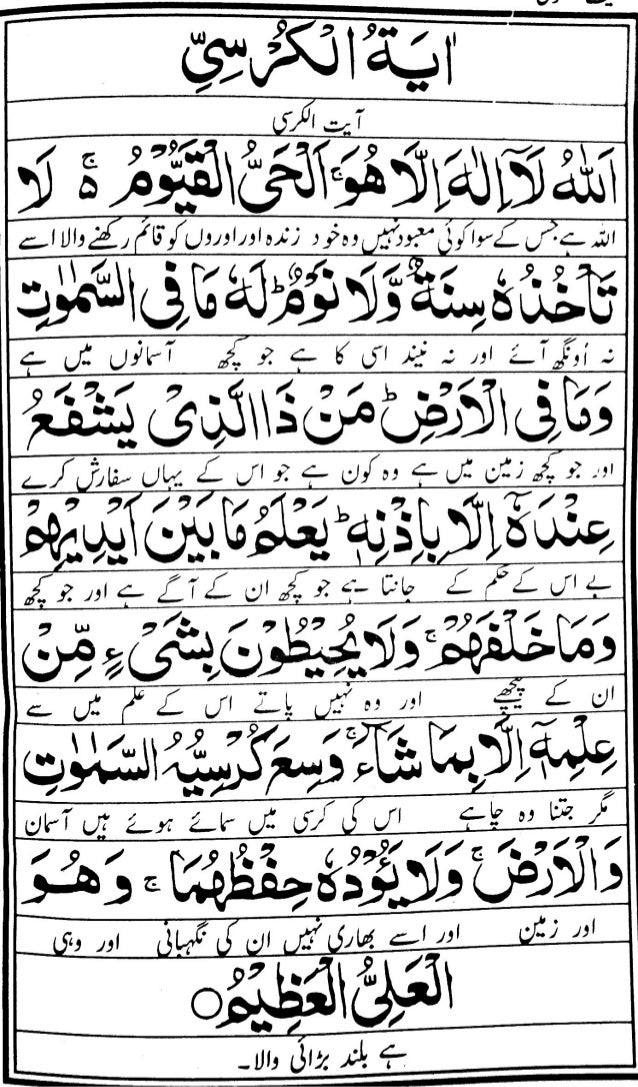 اٰیَةُ الْکُرْسِیِّ
آیت الکرسی
اَللّٰهُ لَاۤ اِلٰهَ اِلَّا هُوَ ۚ اَلْحَیُّ الْقَیُّوْمُ ۵ۚ لَا
اللہ ہے جس کے سوا کوئی معبود نہیں وہ خود زندہ اور اوروں کو قائم رکھنے والا اسے
تَاْخُذُهٗ سِنَةٌ وَّلَا نَوْمٌ ؕ لَهٗ مَا فِی السَّمٰوٰتِ
نہ اُونگھ آئے اور نہ نیند اسی کا ہے جو کچھ آسمانوں میں ہے
وَمَا فِی الْاَرْضِ ؕ مَنْ ذَا الَّذِیْ یَشْفَعُ
اور جو کچھ زمین میں ہے وہ کون ہے جو اس کے یہاں سفارش کرے
عِنْدَهٗۤ اِلَّا بِاِذْنِهٖ ؕ یَعْلَمُ مَا بَیْنَ اَیْدِیْهِمْ
بے اس کے حکم کے جانتا ہے جو کچھ ان کے آگے ہے اور جو کچھ
وَمَا خَلْفَهُمْ ۚ وَلَا یُحِیْطُوْنَ بِشَیْءٍ مِّنْ
ان کے پیچھے اور وہ نہیں پاتے اس کے علم میں سے
عِلْمِهٖۤ اِلَّا بِمَا شَآءَ ۚ وَسِعَ کُرْسِیُّهُ السَّمٰوٰتِ
مگر جتنا وہ چاہے اس کی کرسی میں سمائے ہوئے ہیں آسمان
وَالْاَرْضَ ۚ وَلَا یَـُٔوْدُهٗ حِفْظُهُمَا ۚ وَهُوَ
اور زمین اور اسے بھاری نہیں ان کی نگہبانی اور وہی
الْعَلِیُّ الْعَظِیْمُ ○
ہے بلند بڑائی والا۔